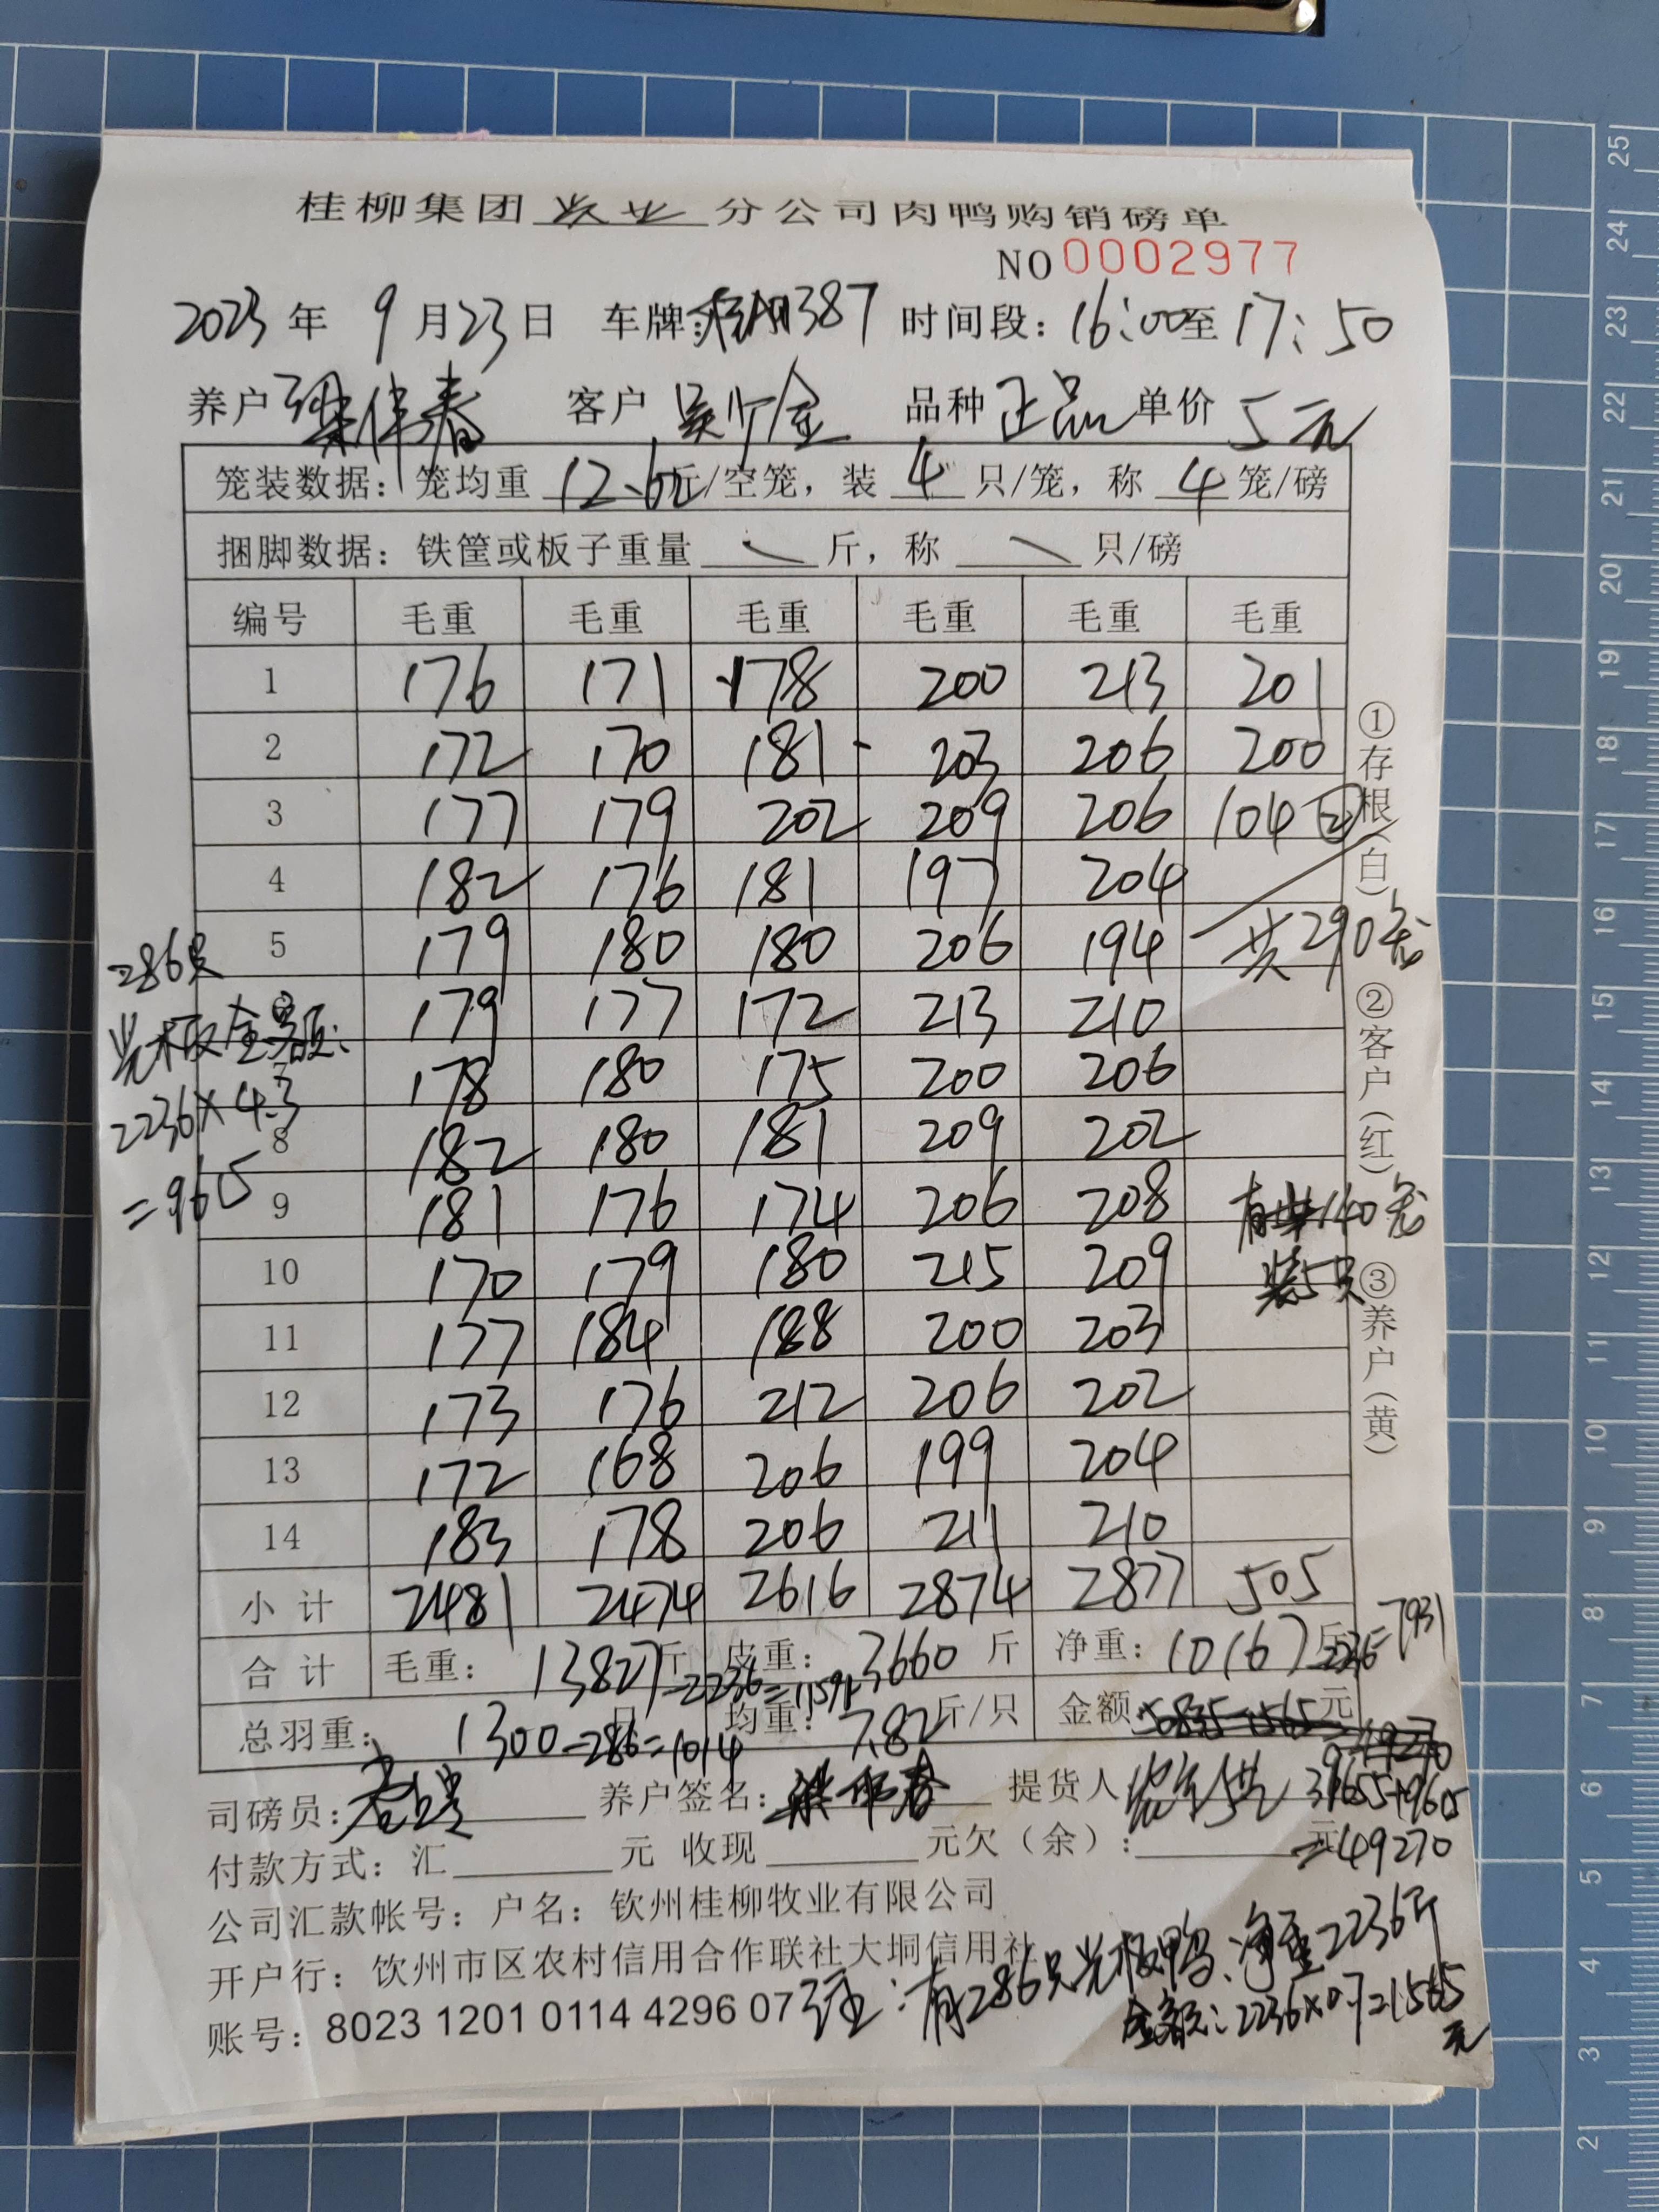 桂柳集团 农业 分公司肉鸭购销磅单
NO 0002977
2023 年 9 月 23 日 车牌: 387 时间段: 16:00 至 17:50
养户 梁伟春 客户 金 品种 正品 单价 5元
笼装数据: 笼均重 12.6 斤/空笼, 装 4 只/笼, 称 4 笼/磅
捆脚数据: 铁筐或板子重量 斤, 称 只/磅
编号 毛重 毛重 毛重 毛重 毛重 毛重
1 176 171 178 200 213 201
2 172 170 181 203 206 200
3 177 179 202 209 206 104 ②
4 182 176 181 197 204
5 179 180 180 206 194 共290笼
179 177 172 213 210
7 178 180 175 200 206
8 182 180 181 209 202
9 181 176 174 206 208 有 140笼
10 170 179 180 215 209 装5只
11 177 184 188 200 203
12 173 176 212 206 202
13 172 168 206 199 204
14 183 178 206 211 210
小计 2481 2474 2616 2874 2877 505
合计 毛重: 13827 斤 -2236=11591 皮重: 3660 斤 净重: 10167 斤 -2236=7931
总羽重: 1300 只 -286=1014 均重: 7.82 斤/只 金额: 元
39655+9605
=49270
司磅员: 养户签名: 梁伟春 提货人
付款方式: 汇 元 收现 元欠(余): 元
公司汇款帐号: 户名: 钦州桂柳牧业有限公司
开户行: 钦州市区农村信用合作联社大垌信用社
账号: 8023 1201 0114 4296 07
注:有286只光板鸭、净重2236斤
金额:2236×0.7=1565元
286只
光板金额:
2236×4.3
=9615
①存根(白)
②客户(红)
③养户(黄)
25
24
23
22
21
20
19
18
17
16
15
14
13
12
11
10
9
8
7
6
5
4
3
2